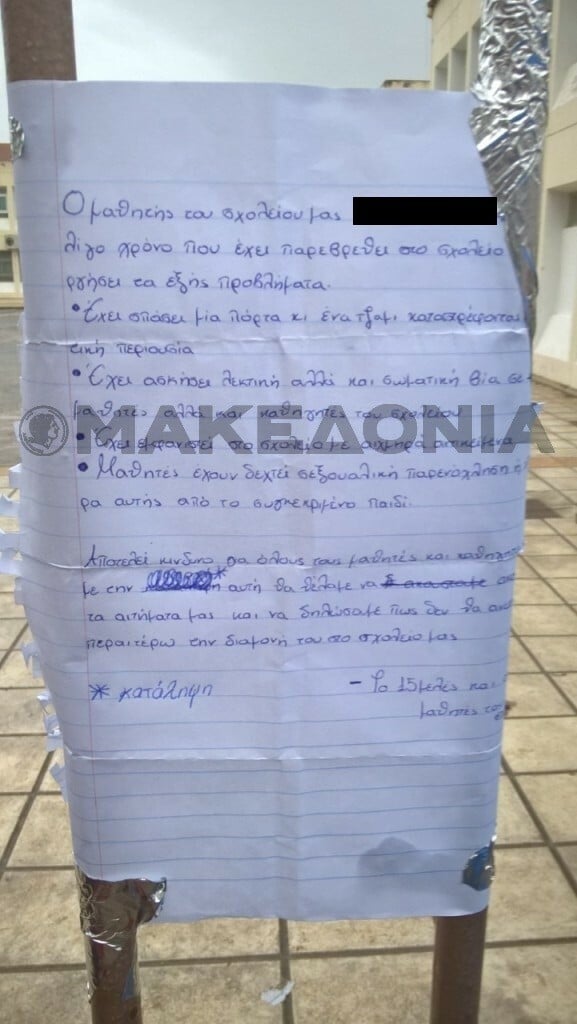 Ο μαθητής του σχολείου μας
λίγο χρόνο που έχει παρεβρεθεί στο σχολείο
ργήσει τα εξής προβλήματα.
• Έχει σπάσει μία πόρτα κι ένα τζάμι καταστρέφοντα
τική περιουσία
• Έχει ασκήσει λεκτική αλλά και σωματική βία σε
μαθητές αλλά και καθηγητές του σχολείου
ΜΑΚΕΔΟΝΙΑ
• Έχει εμφανιστεί στο σχολείο με αιχμηρά αντικείμενα
• Μαθητές έχουν δεχτεί σεξουαλική παρενόχληση ή
ρα αυτής από το συγκεκριμένο παιδί.
Αποτελεί κίνδυνο για όλους τους μαθητές και καθηγητ
με την * αυτή θα θέλαμε να
τα αιτήματα μας και να δηλώσουμε πως δεν θα
περαιτέρω την διαμονή του στο σχολείο μας
* κατάληψη
- Το 15μελές και
μαθητές το